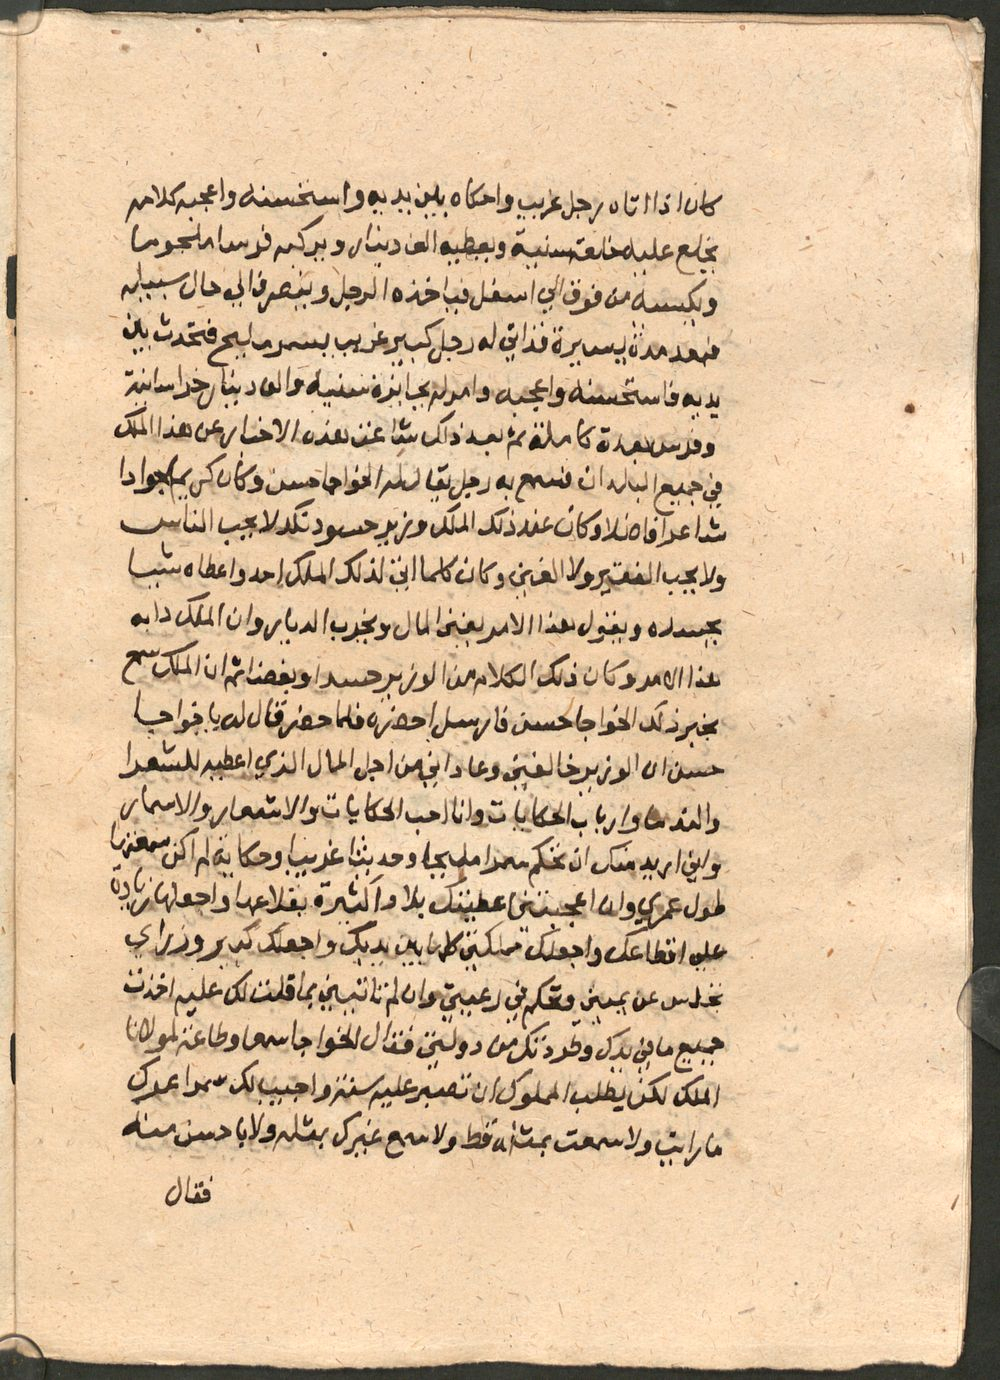 كان اذا اتاه رجل غريب واحكاه بين يديه واستحسنه واعجبه كلامه
يخلع عليه خلعة سنية ويعطيه الف دينار ويركبه فرسا ملجوما
ويكسيه من فوق الي اسفل فياخذه الرجل وينصرف الي حال سبيله
فبعد مدة يسيرة فذاتي له رجل كبير غريب بسمر مليح فتحدث بين
يديه فاستحسنه واعجبه وامر له بجايزة سنيه والف دينار خراسانية
وفرس بعدة كاملة ثم بعد ذلك شاعت هذه الاخبار عن هذا الملك
في جميع البلدان فسمع به رجل يقال له الخواجا حسن وكان كريما جوادا
شاعرا فاضلا وكان عند ذلك الملك وزير حسود نكد لا يحب الناس
ولا يحب الفقير ولا الغني وكان كلما اتي لذلك الملك احد واعطاه شيا
يحسده ويقول هذا الامر يفني المال ويخرب الديار وان الملك دابه
هذا الامر وكان ذلك الكلام من الوزير حسدا وبغضا ثم ان الملك سمع
بخبر ذلك الخواجا حسن فارسل احضره فلما حضر قال له يا خواجا
حسن ان الوزير خالفني وعاداني من اجل المال الذي اعطيه للشعرا
والندما وارباب الحكايات وانا احب الحكايات والاشعار والاسمار
واني اريد منك ان تحكم سمرا مليحا وحديثا غريبا وحكاية لم اكن سمعتها
طول عمري وان اعجبتني اعطيتك بلادا كثيرة بقلاعها واجعلها زيادة
علي اقطاعك واجعلك مملكتي كلها بين يديك واجعلك كبير وزراي
تجلس عن يميني وتحكم في رعيتي وان لم تاتيني بما قلت لك عليه اخذت
جميع ما في يدك وطردتك من دولتي فقال الخواجا سمعا وطاعة لمولانا
الملك لكن يطلب المملوك ان تصبر عليه سنة واجيب لك سمرا عمرك
ما رايت ولا سمعت بمثله قط ولا سمع غيرك بمثله ولا باحسن منه
فقال